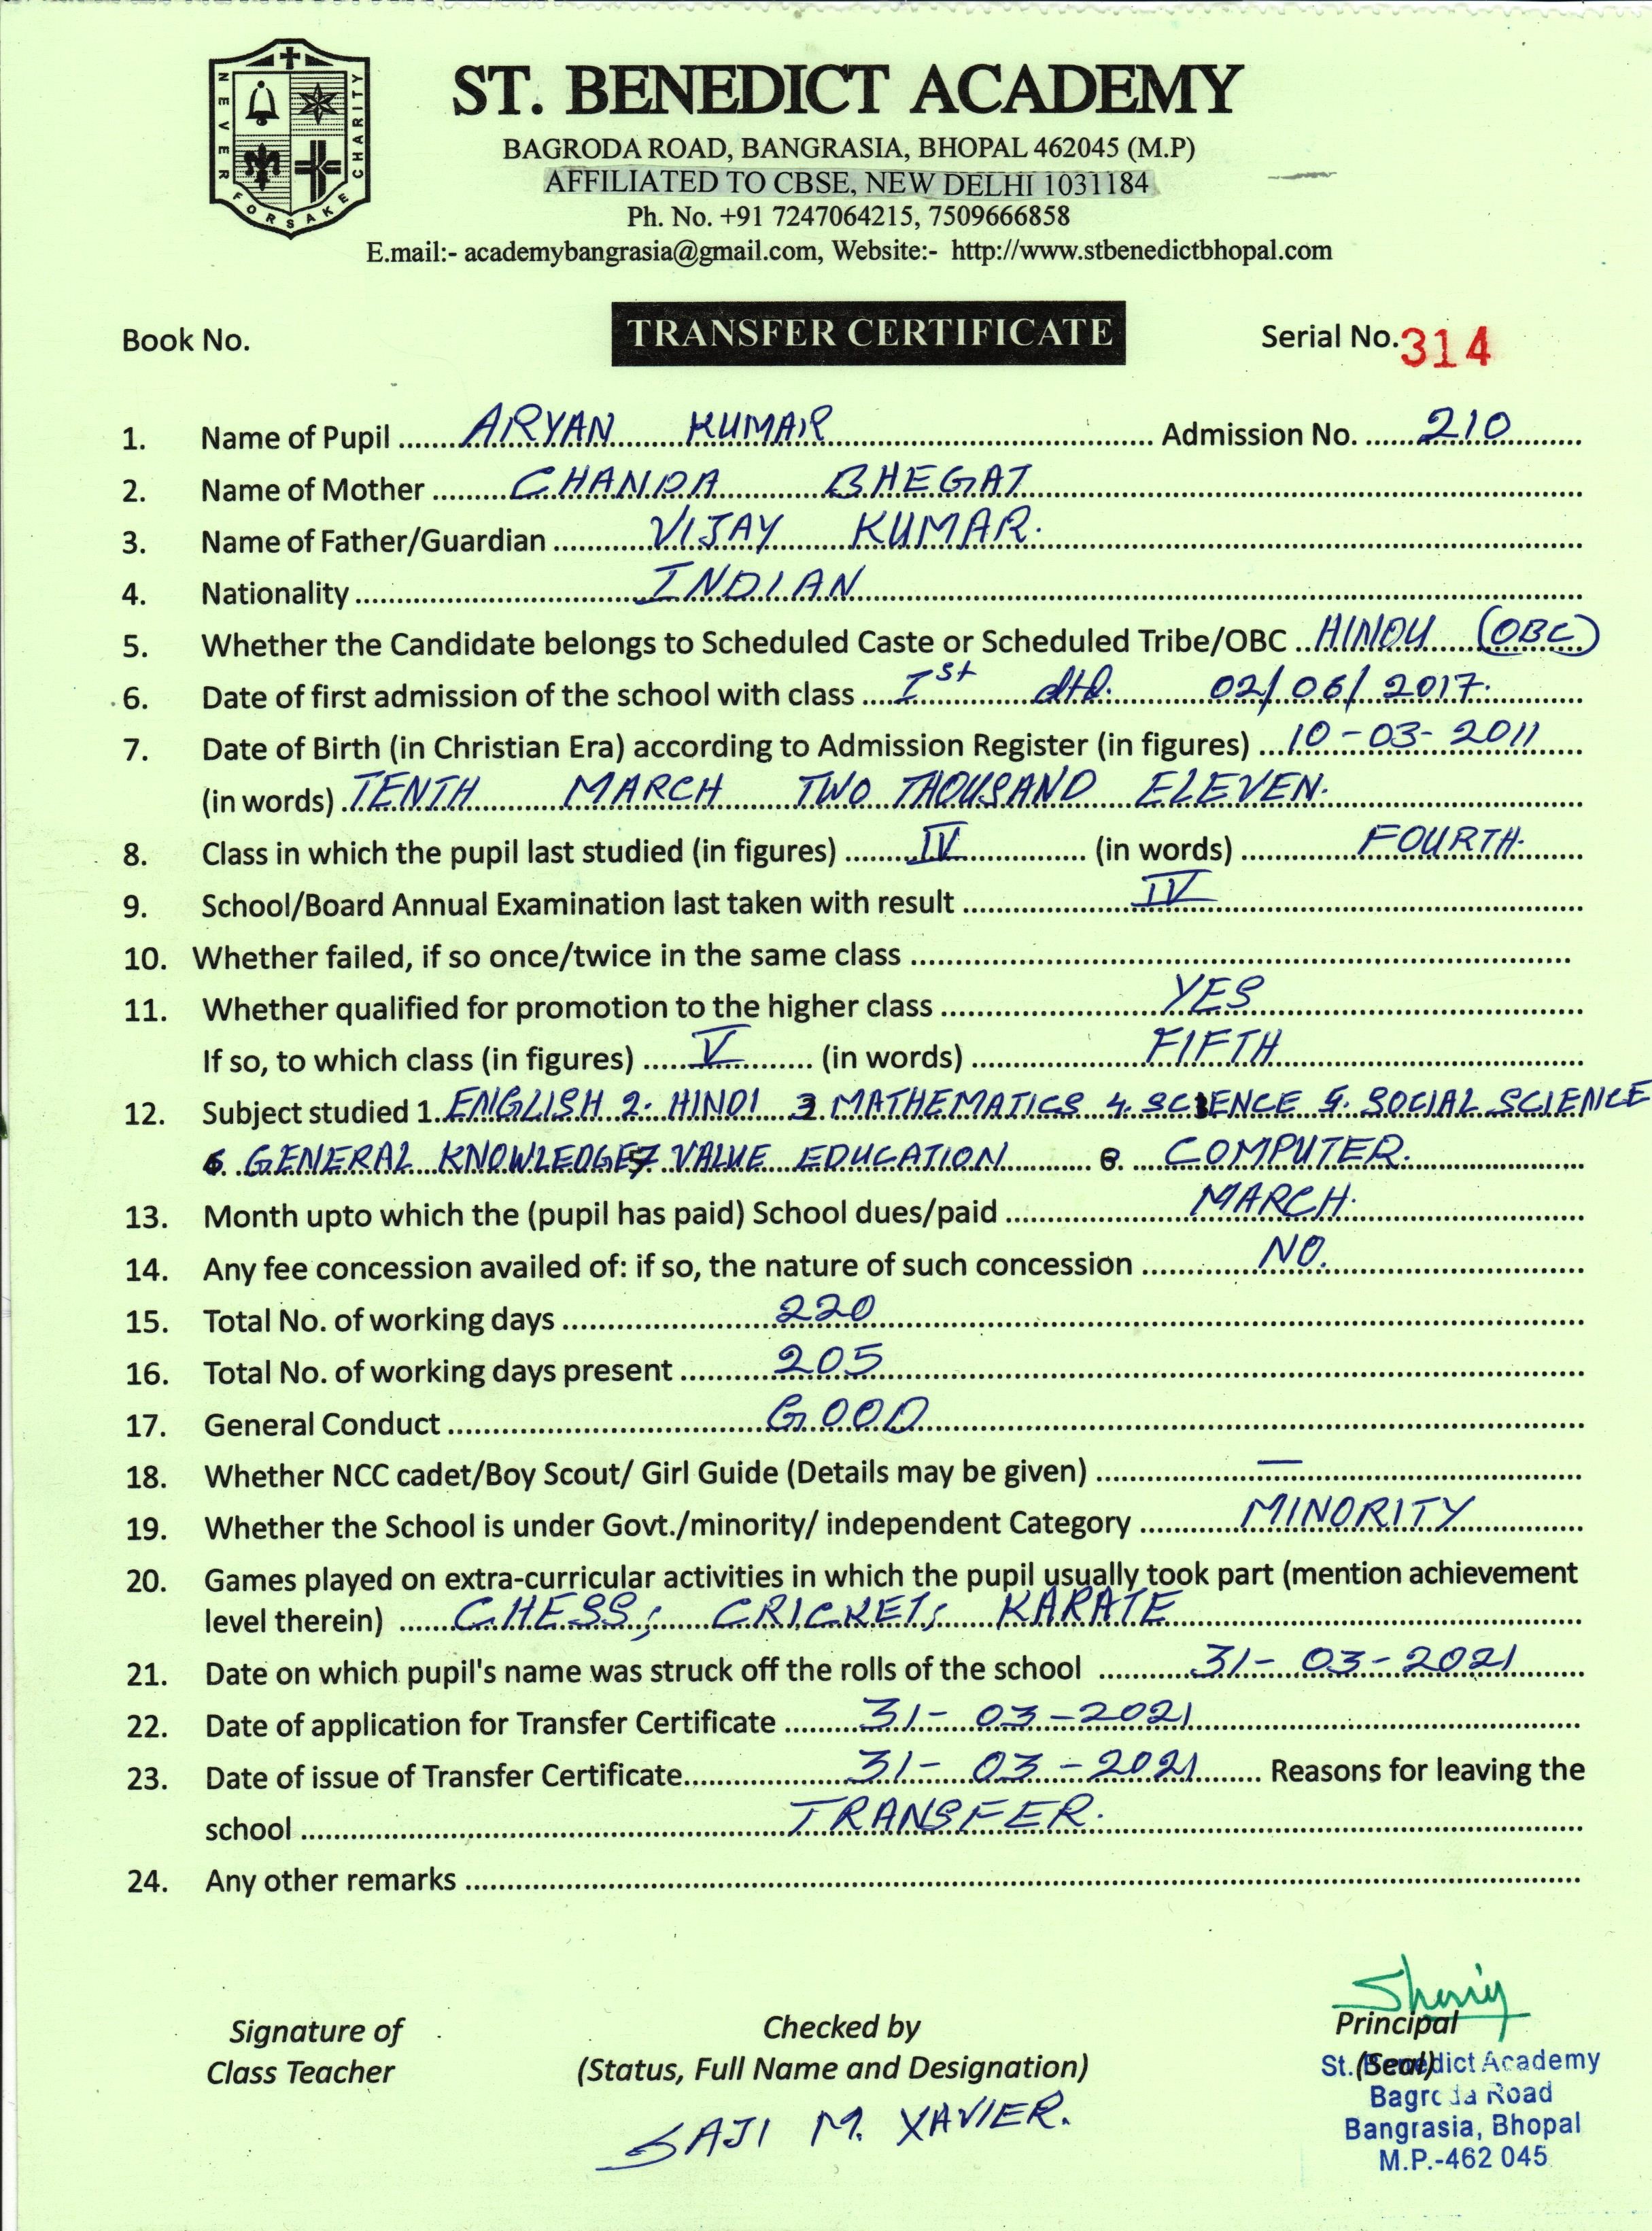 NEVER FORSAKE CHARITY
ST. BENEDICT ACADEMY
BAGRODA ROAD, BANGRASIA, BHOPAL 462045 (M.P)
AFFILIATED TO CBSE, NEW DELHI 1031184
Ph. No. +91 7247064215, 7509666858
E.mail:- academybangrasia@gmail.com, Website:- http://www.stbenedictbhopal.com
Book No. TRANSFER CERTIFICATE Serial No. 314
1. Name of Pupil ARYAN KUMAR Admission No. 210
2. Name of Mother CHANDA BHEGAT
3. Name of Father/Guardian VIJAY KUMAR.
4. Nationality INDIAN
5. Whether the Candidate belongs to Scheduled Caste or Scheduled Tribe/OBC HINDU (OBC)
6. Date of first admission of the school with class Ist dtd. 02/06/2017.
7. Date of Birth (in Christian Era) according to Admission Register (in figures) 10-03-2011
(in words) TENTH MARCH TWO THOUSAND ELEVEN.
8. Class in which the pupil last studied (in figures) IV (in words) FOURTH.
9. School/Board Annual Examination last taken with result IV
10. Whether failed, if so once/twice in the same class
11. Whether qualified for promotion to the higher class YES
If so, to which class (in figures) V (in words) FIFTH
12. Subject studied 1. ENGLISH 2. HINDI 3 MATHEMATICS 4. SCIENCE 5. SOCIAL SCIENCE
6. GENERAL KNOWLEDGE 7 VALUE EDUCATION 8. COMPUTER.
13. Month upto which the (pupil has paid) School dues/paid MARCH.
14. Any fee concession availed of: if so, the nature of such concession NO.
15. Total No. of working days 220
16. Total No. of working days present 205
17. General Conduct GOOD
18. Whether NCC cadet/Boy Scout/ Girl Guide (Details may be given) —
19. Whether the School is under Govt./minority/ independent Category MINORITY
20. Games played on extra-curricular activities in which the pupil usually took part (mention achievement
level therein) CHESS; CRICKET; KARATE
21. Date on which pupil's name was struck off the rolls of the school 31-03-2021
22. Date of application for Transfer Certificate 31-03-2021
23. Date of issue of Transfer Certificate 31-03-2021 Reasons for leaving the
school TRANSFER.
24. Any other remarks
Signature of Checked by Principal
Class Teacher (Status, Full Name and Designation) (Seal)
St. Benedict Academy
Bagroda Road
Bangrasia, Bhopal
M.P.-462 045
SAJI M. XAVIER.